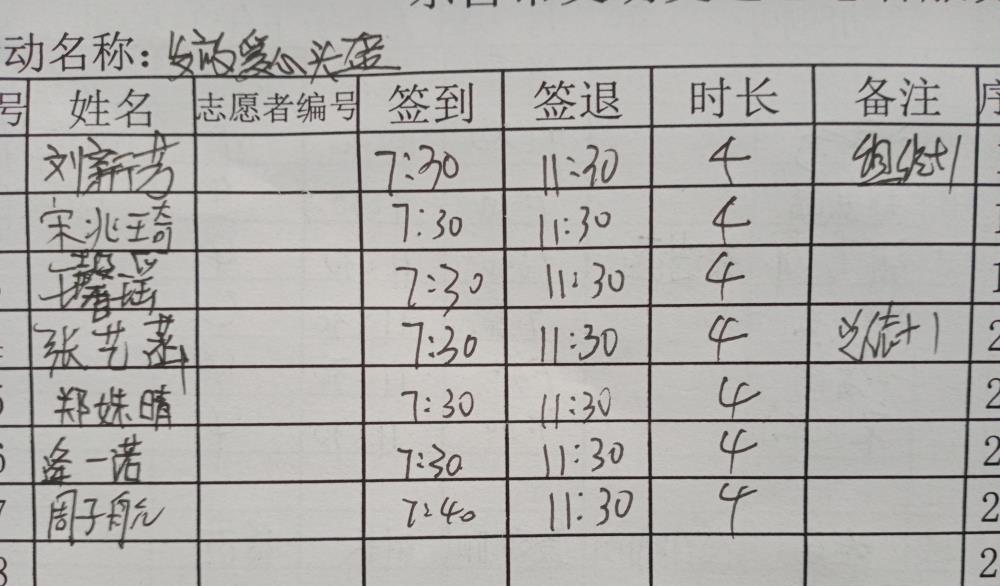 动名称：发放爱心头蛋
号 姓名 志愿者编号 签到 签退 时长 备注 序
刘新芳 7:30 11:30 4 组织+1 1
宋兆琦 7:30 11:30 4 1
7:30 11:30 4 1
张艺菡 7:30 11:30 4 宣传+1 2
5 郑姝晴 7:30 11:30 4 2
6 逄一诺 7:30 11:30 4 2
7 周子航 7:40 11:30 4 2
8 2